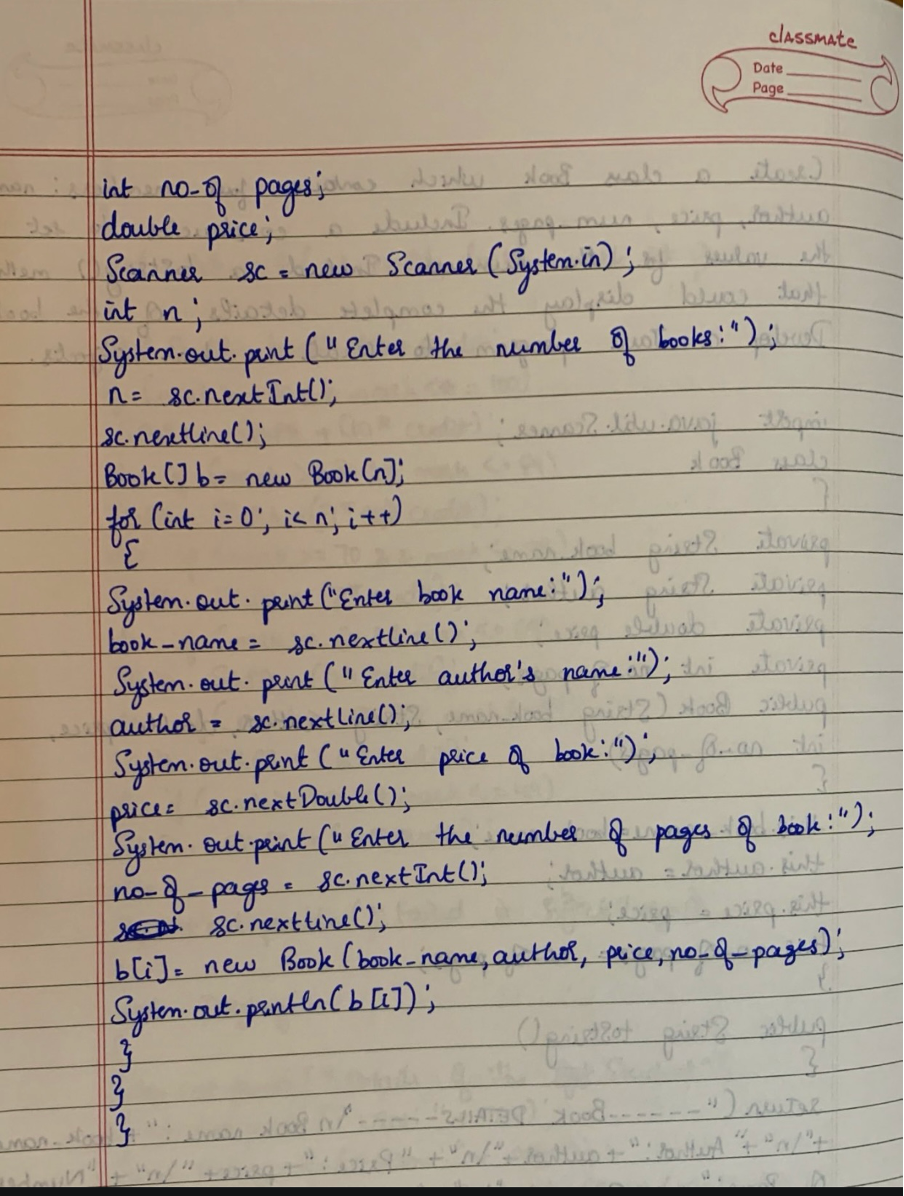 classmate
Date
Page
int no-of pages;
double price;
Scanner sc = new Scanner (System.in);
int n;
System.out.print ("Enter the number of books:");
n= sc.nextInt();
sc.nextline();
Book[] b= new Book[n];
for (int i=0; i<n; i++)
{
System.out.print ("Enter book name:");
book-name= sc.nextline();
System.out.print ("Enter author's name:");
author = sc.nextLine();
System.out.print ("Enter price of book:");
price= sc.nextDouble();
System.out.print ("Enter the number of pages of book:");
no-of-pages = sc.nextInt();
sc.nextline();
b[i]= new Book (book-name, author, price, no-of-pages);
System.out.println(b[i]);
}
}
}